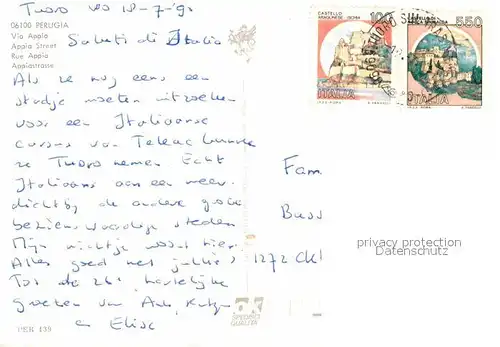 Tuoro 18-7-'9
06100 PERUGIA
Via Appia
Appia Street
Rue Appia
Appiastrasse
Saluti di Italia
Als ze nog eens een
stadje moeten uitzoeken
voor een Italiaanse
cursus van Teleac kunnen
ze Tuoro nemen. Echt
Italiaans aan een meer
dichtbij de andere grote
bezienswaardige steden
Mijn nichtje woont hier.
Alles goed met jullie?
Tot de 26e, hartelijke
groeten van
en Elise
PER 139
CASTELLO
ARAGONESE - ISCHIA
100
ITALIA
550
ITALIA
Fam
Buss
1272 CK
SPECIMEN
QUALITÀ
privacy protection
Datenschutz